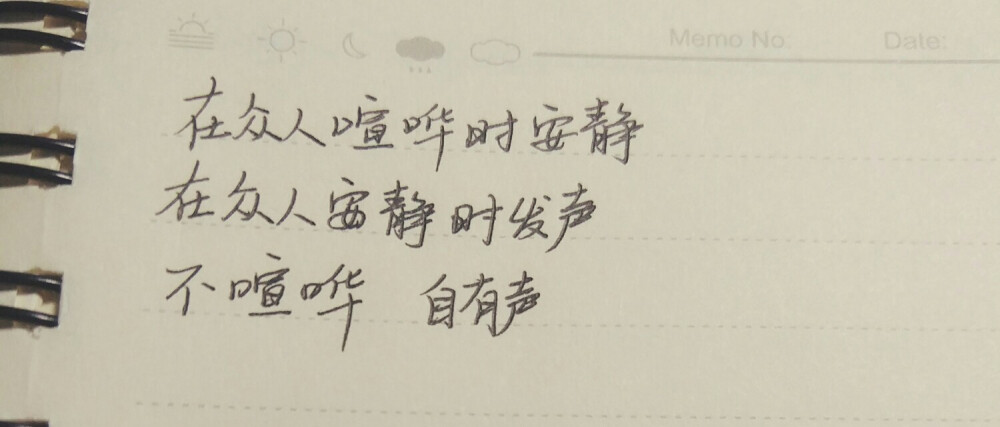 Memo No: Date:
在众人喧哗时安静
在众人安静时发声
不喧哗 自有声